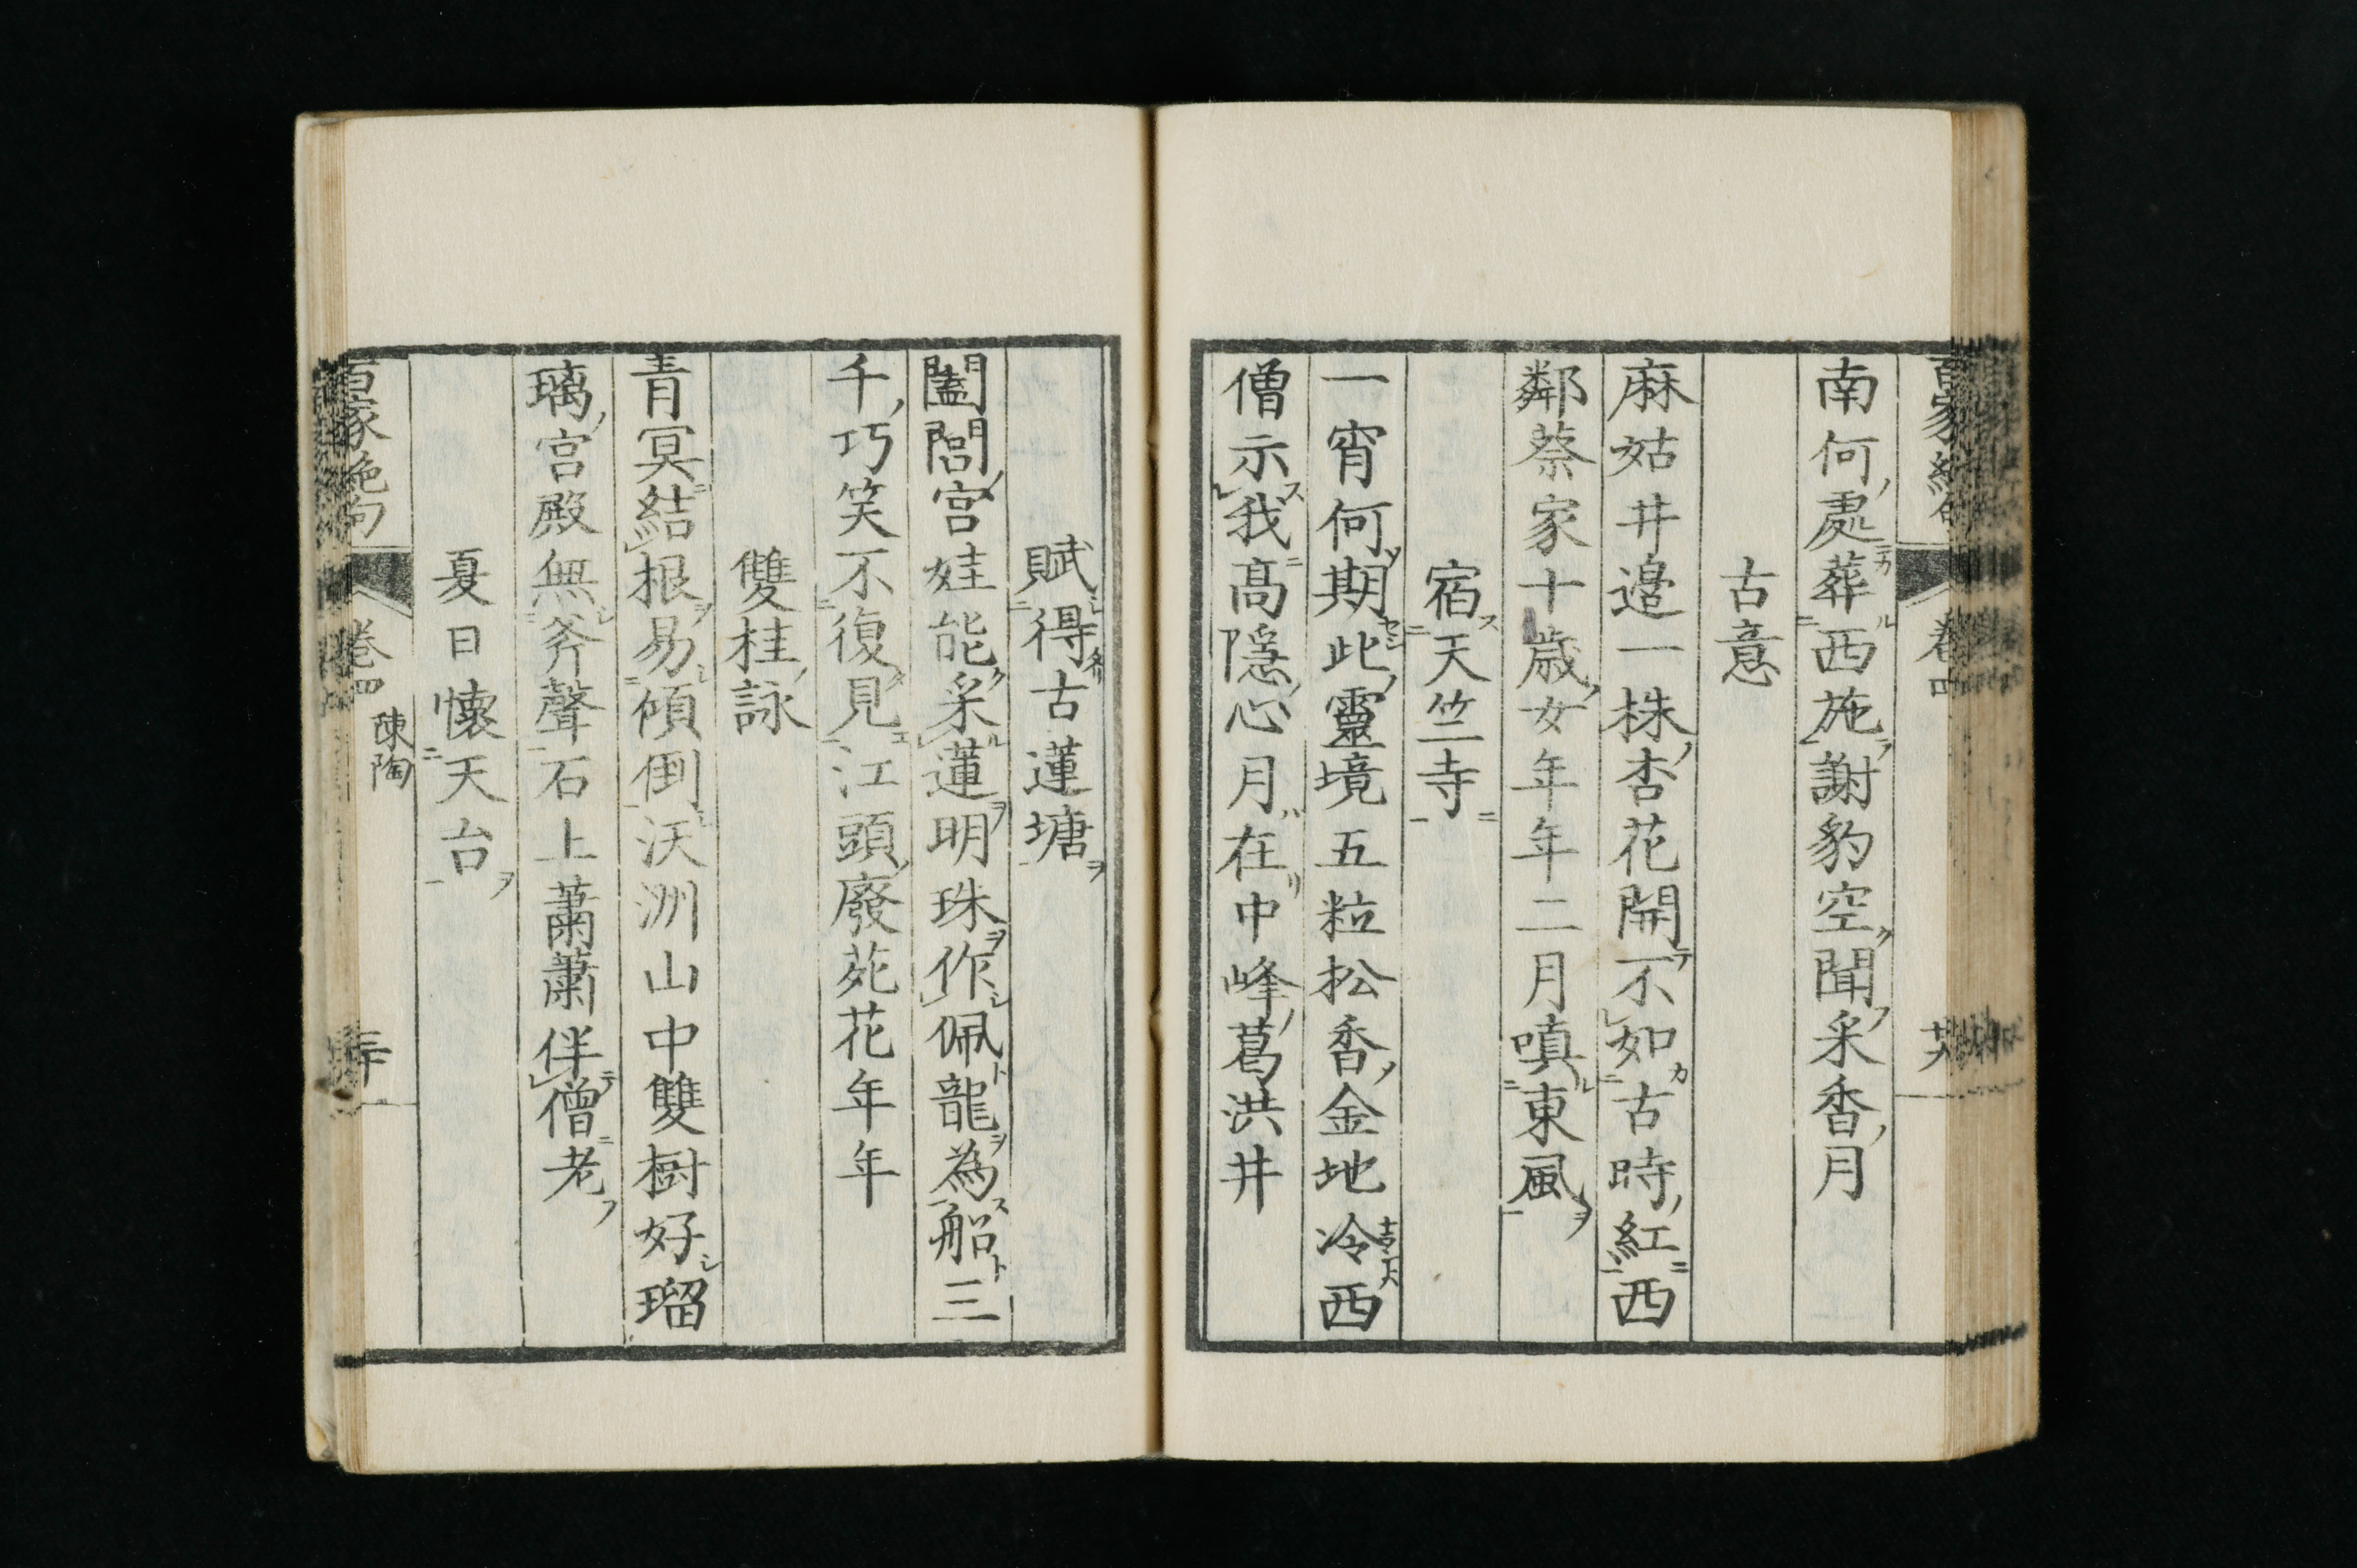 百家絶句
卷四
南何處葬西施謝豹空聞采香月
古意
麻姑井邉一株杏花開不如古時紅西
鄰蔡家十歳女年年二月嗔東風
宿天竺寺
一宵何期此靈境五粒松香金地冷西
僧示我髙隱心月在中峰葛洪井
賦得古蓮塘
闔閭宮娃能采蓮明珠作佩龍為船三
千巧笑不復見江頭廢苑花年年
雙桂詠
青冥結根易傾倒沃洲山中雙樹好瑠
璃宮殿無斧聲石上蕭蕭伴僧老
夏日懷天台
百家絶句
卷四
陳陶